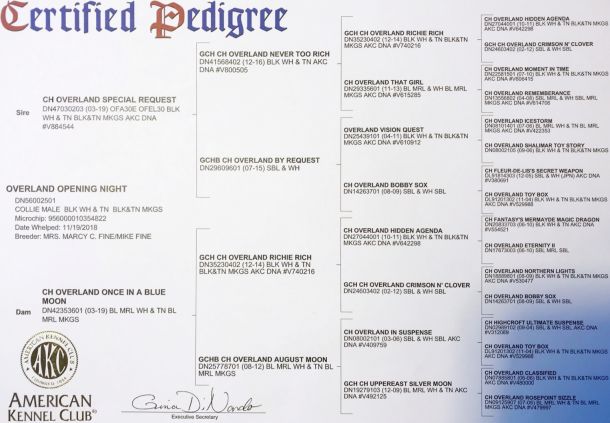 Certified Pedigree
Sire
CH OVERLAND SPECIAL REQUEST
DN47030203 (03-19) OFA30E OFEL30 BLK
WH & TN BLK&TN MKGS AKC DNA
#V884544
OVERLAND OPENING NIGHT
DN56002501
COLLIE MALE BLK WH & TN BLK&TN MKGS
Microchip: 956000010354822
Date Whelped: 11/19/2018
Breeder: MRS. MARCY C. FINE/MIKE FINE
Dam
CH OVERLAND ONCE IN A BLUE
MOON
DN42353601 (03-19) BL MRL WH & TN BL
MRL MKGS
AMERICAN KENNEL CLUB
AKC
FOUNDED 1884
AMERICAN
KENNEL CLUB®
Gina DiNardo
Executive Secretary
GCH CH OVERLAND NEVER TOO RICH
DN41568402 (12-16) BLK WH & TN AKC
DNA #V800505
GCHB CH OVERLAND BY REQUEST
DN29609601 (07-15) SBL & WH
GCH CH OVERLAND RICHIE RICH
DN35230402 (12-14) BLK WH & TN
BLK&TN MKGS AKC DNA #V740216
GCHB CH OVERLAND AUGUST MOON
DN25778701 (08-12) BL MRL WH & TN BL
MRL MKGS
GCH CH OVERLAND RICHIE RICH
DN35230402 (12-14) BLK WH & TN BLK&TN
MKGS AKC DNA #V740216
CH OVERLAND THAT GIRL
DN29335601 (11-13) BL MRL & WH BL MRL
MKGS AKC DNA #V615285
OVERLAND VISION QUEST
DN25439101 (04-11) BLK WH & TN BLK&TN
MKGS AKC DNA #V610912
CH OVERLAND BOBBY SOX
DN14263701 (08-09) SBL & WH SBL
CH OVERLAND HIDDEN AGENDA
DN27044001 (10-11) BLK WH & TN BLK&TN
MKGS AKC DNA #V642298
GCH CH OVERLAND CRIMSON N' CLOVER
DN24603402 (02-12) SBL & WH SBL
CH OVERLAND IN SUSPENSE
DN08002101 (03-06) SBL & WH SBL AKC
DNA #V409759
GCH CH UPPEREAST SILVER MOON
DN19279103 (12-09) BL MRL & WH AKC
DNA #V492125
CH OVERLAND HIDDEN AGENDA
DN27044001 (10-11) BLK WH & TN BLK&TN
MKGS AKC DNA #V642298
GCH CH OVERLAND CRIMSON N' CLOVER
DN24603402 (02-12) SBL & WH SBL
CH OVERLAND MOMENT IN TIME
DN22581501 (07-10) BLK WH & TN BLK&TN
MKGS AKC DNA #V606415
CH OVERLAND REMEMBERANCE
DN13556802 (04-08) SBL MRL & WH SBL MRL
MKGS AKC DNA #V614706
CH OVERLAND ICESTORM
DN08101401 (07-06) BL MRL WH & TN BL MRL
MKGS AKC DNA #V422353
CH OVERLAND SHALIMAR TOY STORY
DN08002105 (09-06) BLK WH & TN BLK&TN MKGS
CH FLEUR-DE-LIS'S SECRET WEAPON
DL91814303 (12-05) SBL & WH (JPN) AKC DNA
#V380691
CH OVERLAND TOY BOX
DL91201302 (11-04) BLK WH & TN BLK&TN MKGS
AKC DNA #V529988
CH FANTASY'S MERMAYDE MAGIC DRAGON
DN20833703 (06-10) BLK WH & TN AKC DNA
#V554521
CH OVERLAND ETERNITY II
DN17673003 (06-10) SBL MRL SBL
CH OVERLAND NORTHERN LIGHTS
DN18889801 (08-09) BL MRL WH & TN BL MRL
MKGS AKC DNA #V530477
CH OVERLAND BOBBY SOX
DN14263701 (08-09) SBL & WH SBL
CH HIGHCROFT ULTIMATE SUSPENSE
(09-04) SBL & WH SBL AKC DNA
#V312089
CH OVERLAND TOY BOX
DL91201302 (11-04) BLK WH & TN BLK&TN MKGS
AKC DNA #V529988
CH OVERLAND CLASSIFIED
DN07885801 (06-06) BLK WH & TN BLK&TN MKGS
AKC DNA #V480000
CH OVERLAND ROSEPOINT SIZZLE
DN09125907 (07-06) BL MRL WH & TN BL MRL
MKGS AKC DNA #V479997